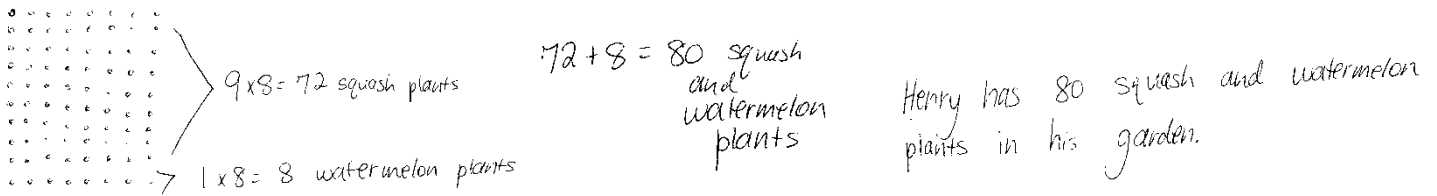 9 x 8 = 72 squash plants
1 x 8 = 8 watermelon plants
72 + 8 = 80 squash
and
watermelon
plants
Henry has 80 squash and watermelon
plants in his garden.